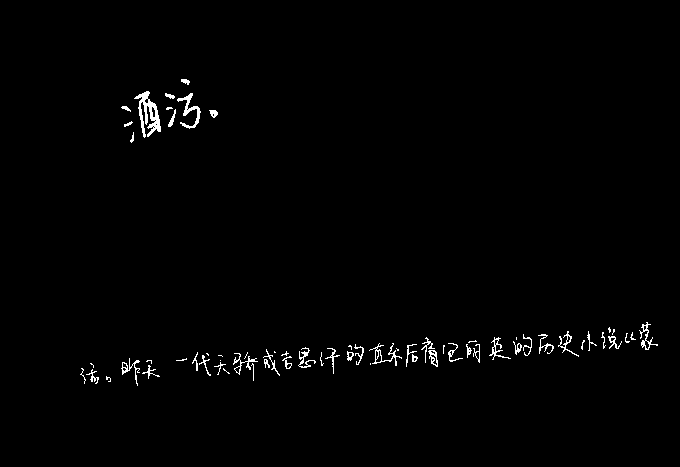 酒污。
活。昨天一代天骄成吉思汗的直系后裔包丽英的历史小说《蒙